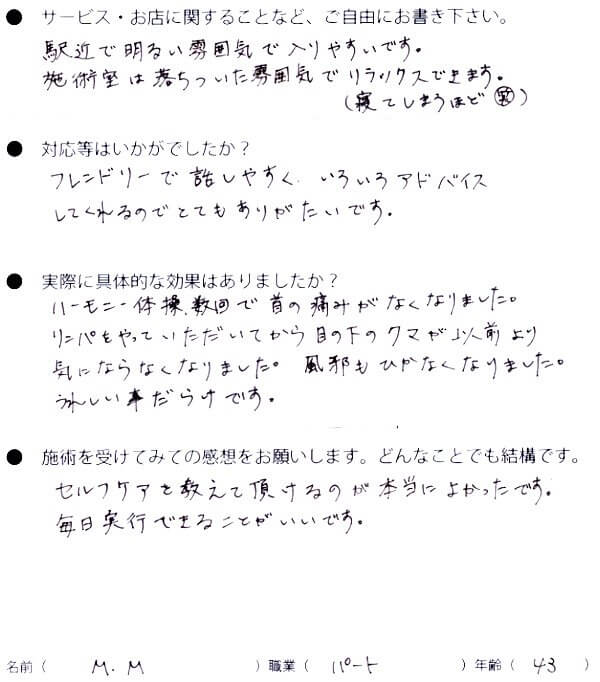 ● サービス・お店に関することなど、ご自由にお書き下さい。
駅近で明るい雰囲気で入りやすいです。
施術室は落ちついた雰囲気でリラックスできます。
(寝てしまうほど㊙)
● 対応等はいかがでしたか？
フレンドリーで話しやすく、いろいろアドバイス
してくれるのでとてもありがたいです。
● 実際に具体的な効果はありましたか？
ハーモニー体操、数回で首の痛みがなくなりました。
リンパをやっていただいてから目の下のクマが以前より
気にならなくなりました。風邪もひかなくなりました。
うれしい事だらけです。
● 施術を受けてみての感想をお願いします。どんなことでも結構です。
セルフケアを教えて頂けるのが本当によかったです。
毎日実行できることがいいです。
名前（ M.M ）職業（ パート ）年齢（ 43 ）